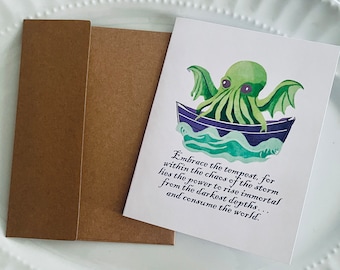 Embrace the tempest, for
within the chaos of the storm
lies the power to rise immortal
from the darkest depths...
and consume the world.